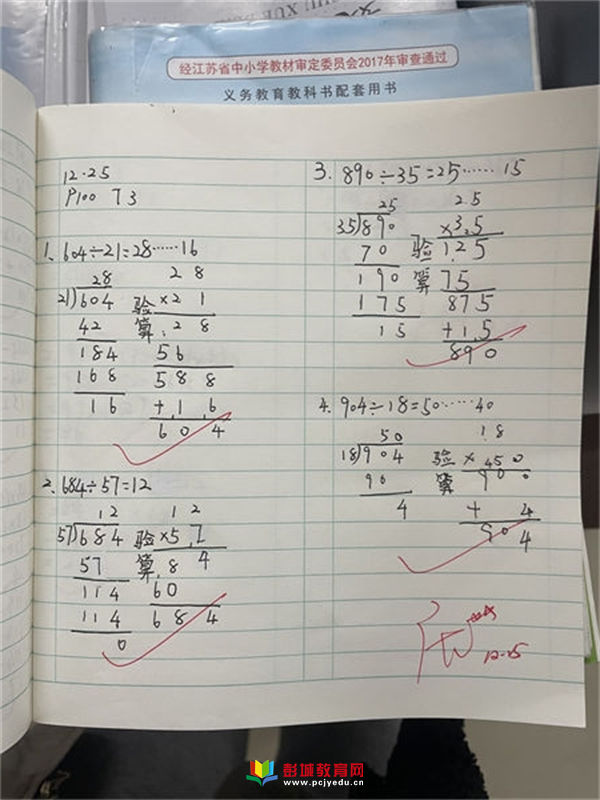 经江苏省中小学教材审定委员会2017年审查通过
义务教育教科书配套用书
12.25
P100 T3
1. 604÷21=28……16
28
21)604
42
184
168
16
验算:
28
×21
28
56
588
+16
604
2. 684÷57=12
12
57)684
57
114
114
0
验算:
12
×57
84
60
684
3. 890÷35=25……15
25
35)890
70
190
175
15
验算
25
×35
125
75
875
+15
890
4. 904÷18=50……40
50
18)904
90
4
验算
18
×50
900
+4
904
12-25
彭城教育网
www.pcjyedu.cn